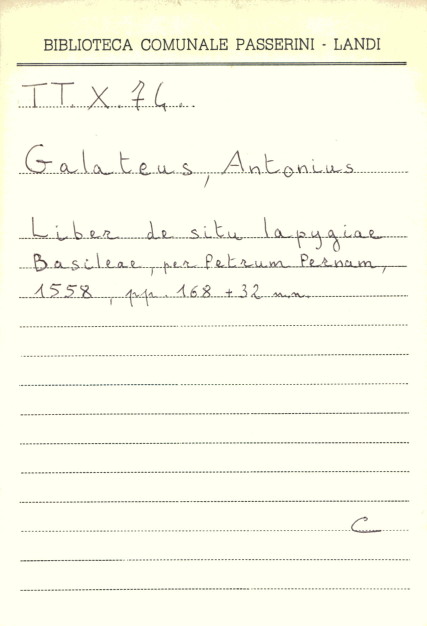 BIBLIOTECA COMUNALE PASSERINI - LANDI
TT. X. 74.
Galateus, Antonius
Liber de situ Iapygiae
Basileae, per Petrum Pernam,
1558, pp. 168 + 32 n.n.
C